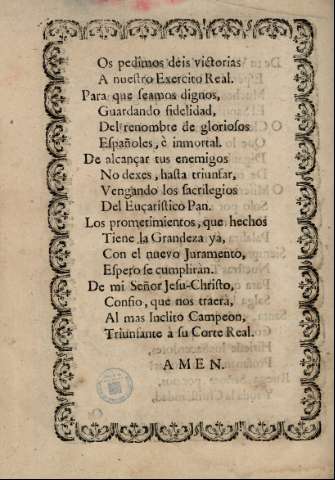 Os pedimos deis victorias
A nuestro Exercito Real.
Para que seamos dignos,
Guardando fidelidad,
Del renombre de gloriosos
Españoles, è inmortal.
De alcançar tus enemigos
No dexes, hasta triunfar,
Vengando los sacrilegios
Del Eucaristico Pan.
Los prometimientos, que hechos
Tiene la Grandeza ya,
Con el nuevo Juramento,
Espero se cumpliràn.
De mi Señor Jesu-Christo,
Confio, que nos traerà,
Al mas Inclito Campeon,
Triunfante à su Corte Real.
AMEN.